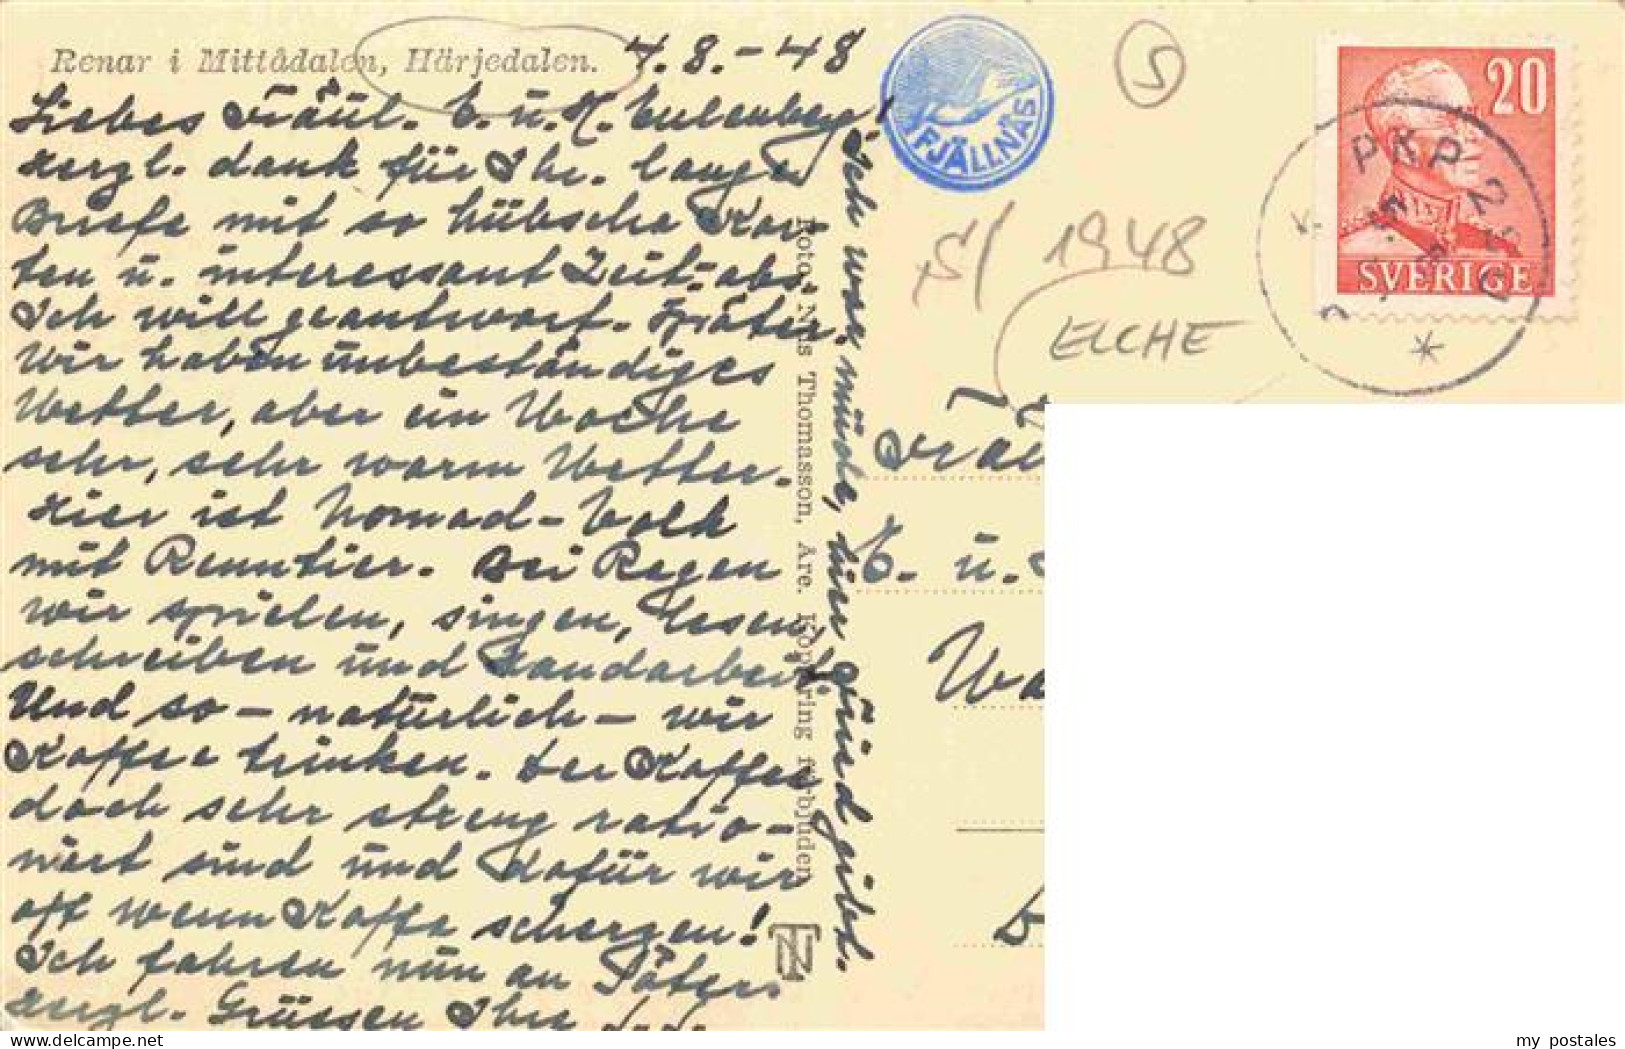 Renar i Mittådalen, Härjedalen.
4.8.-48
Liebes Fräul. E. u. H. Eulenberg!
Herzl. dank für Ihr. lange
Briefe mit so hübsche Kar-
ten u. interessant Zeit-abs.
Ich will geantwort. Später.
Wir haben unbeständiges
Wetter, aber ein Woche
sehr, sehr warm Wetter.
Hier ist Nomad-Volk
mit Renntier. Bei Regen
wir spielen, singen, lesen,
schreiben und Handarbeit
Und so - natürlich - wir
Kaffee trinken. Der Kaffee
doch sehr streng ratio-
niert sind und dafür wir
oft wenn Kaffe schergen!
Ich fahren nun an Päter.
Herzl. Grüssen Ihre
Ich war müde,
Foto: Nils Thomasson, Åre. Kopiering förbjuden
NT
FJÄLLNÄS
S
S/ 1948
ELCHE
20
SVERIGE
PKP
E. u.
my postales